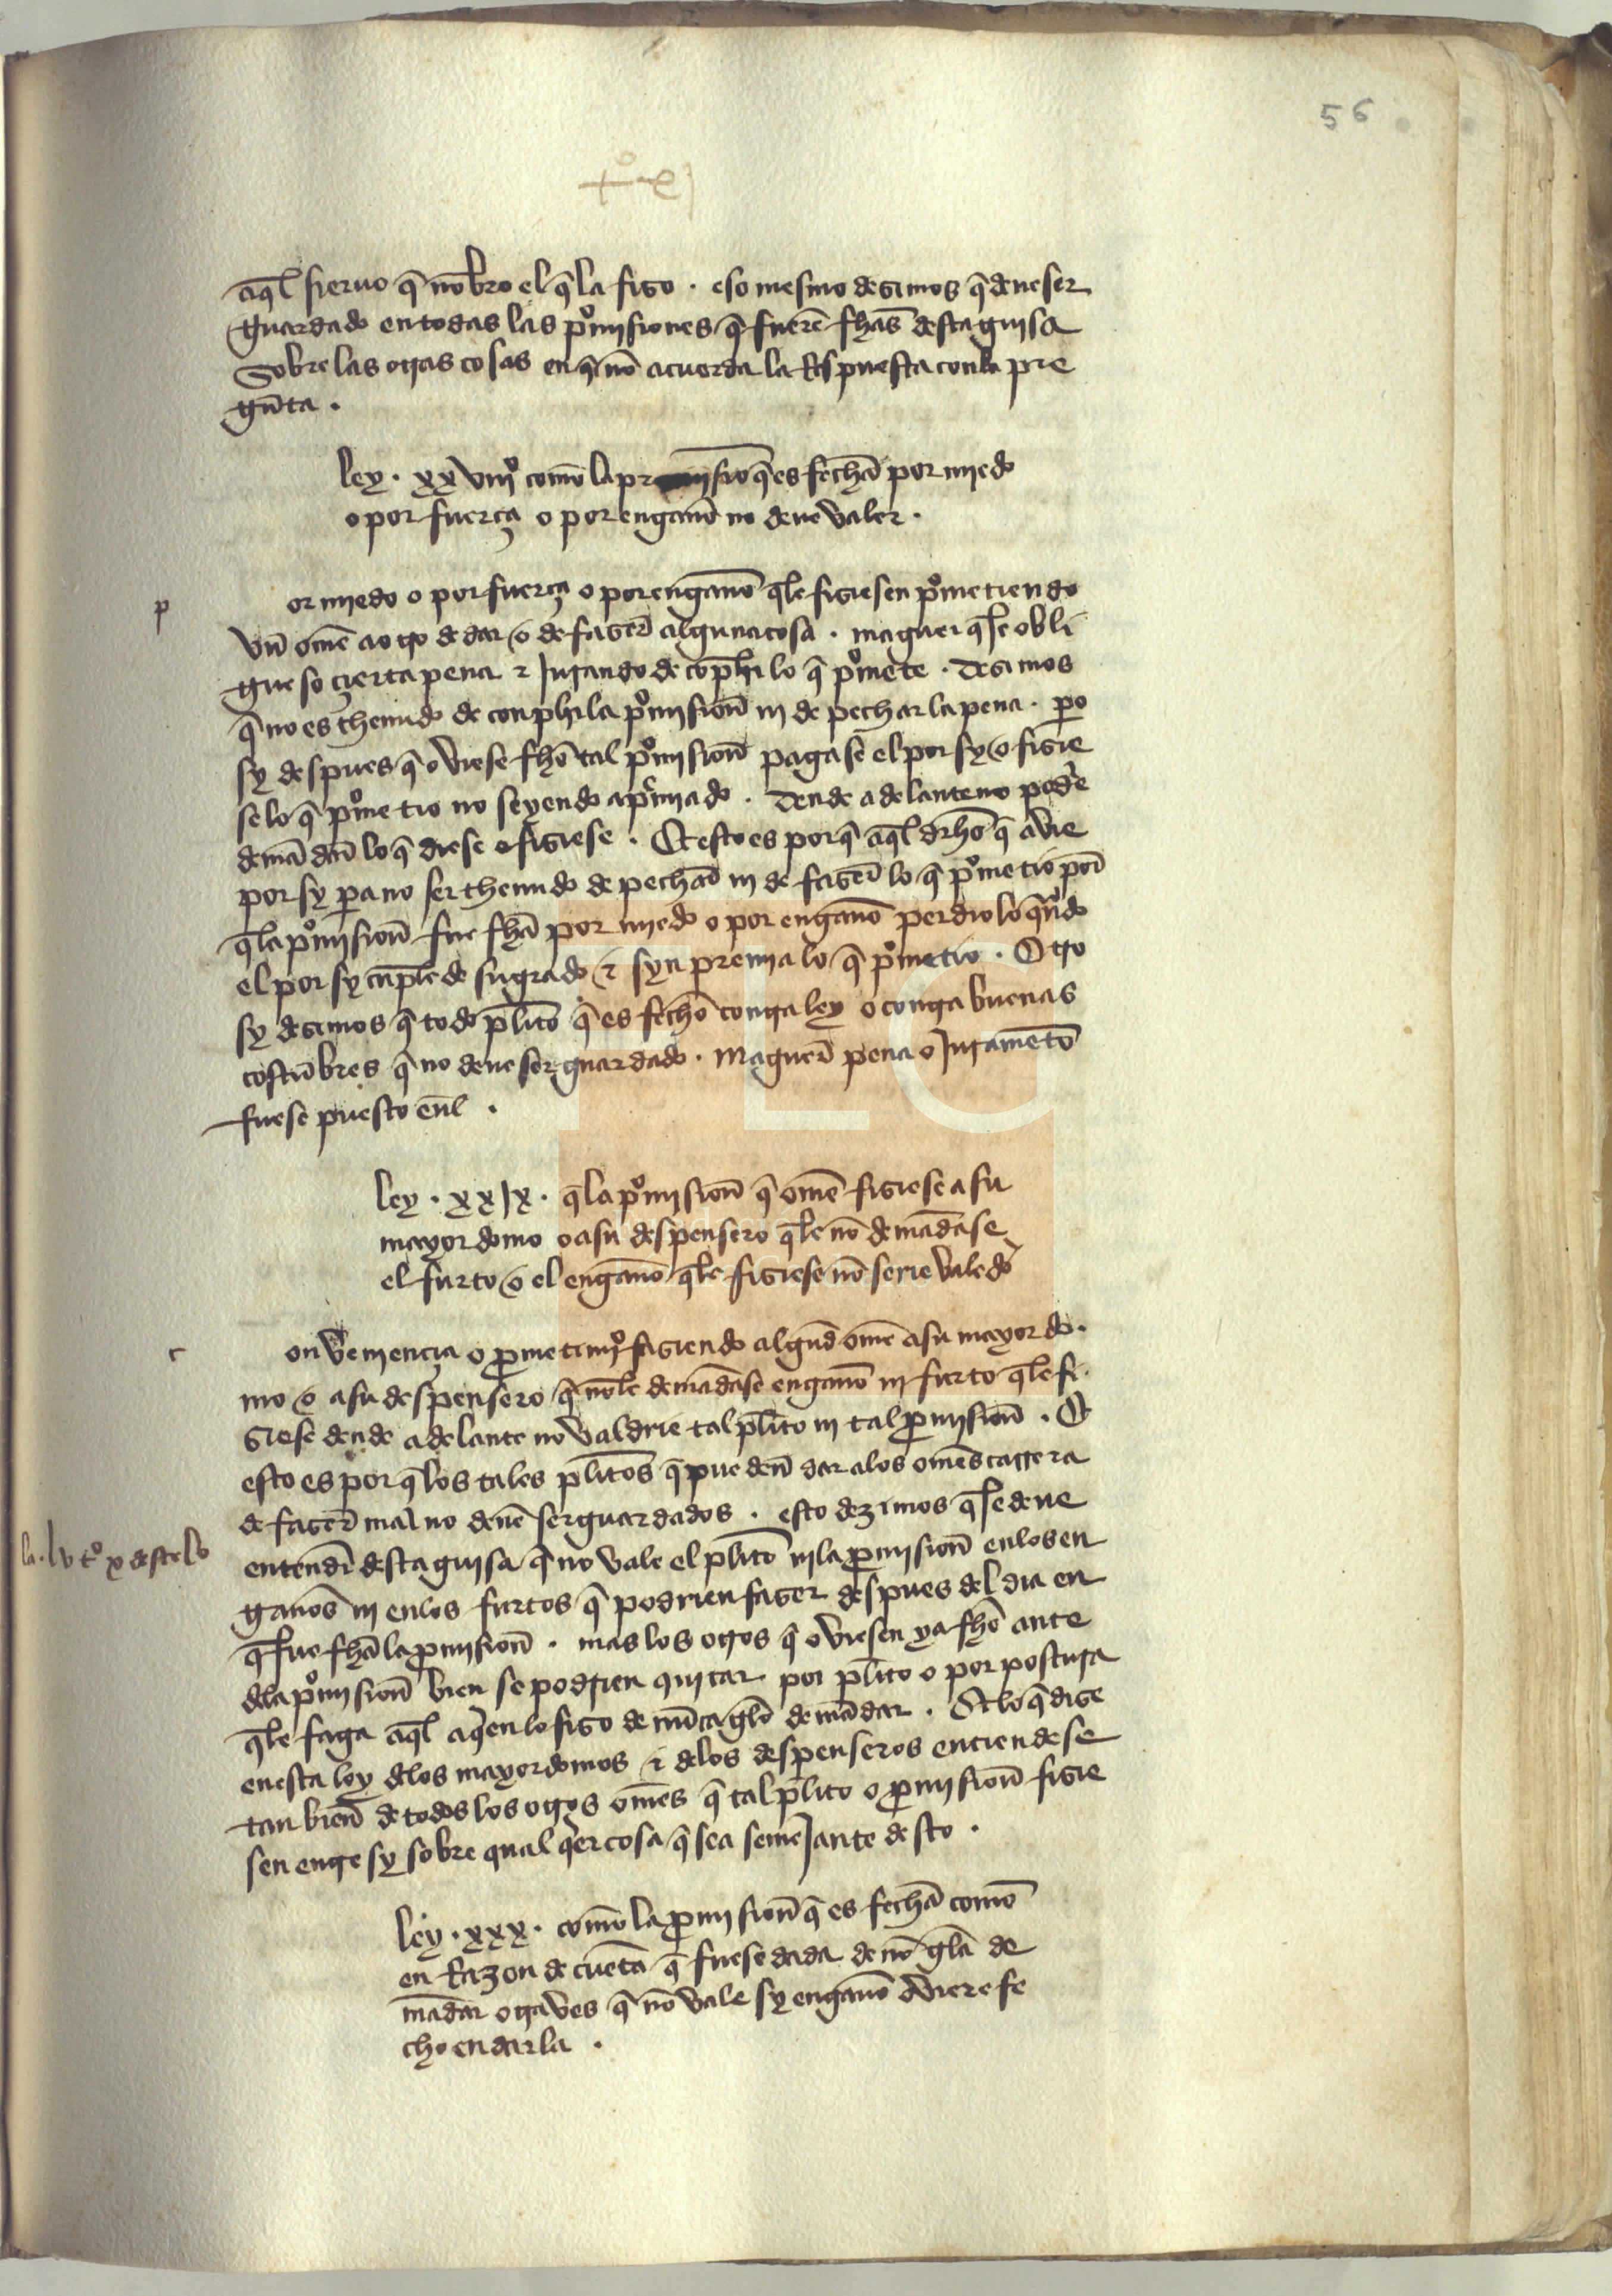 56
tº xj
aql̄ sieruo q̄ nōbro el q̄ la fiso . eso mesmo desimos q̄ deue ser
guardado en todas las pºmisiones q̄ fuerē fhas̄ desta guisa
Sobre las otras cosas en q̄ nō acuerda la Respuesta con la pre
gūta .
ley . xxviijº comō la promisiō q̄ es fechā por miedo
o por fuerça o por engano͞ no deue valer .
p
or miedo o por fuerça o por engano͞ q̄le fisiesen pºmetiendo
vn̄ ome͞ a otro de dar o de faser̄ alguna cosa . maguer q̄ se obli
gue so çierta pena τ jurando de conp̄lir lo q̄ pºmete . desimos
q̄ no es thenudo de conplir la pºmision̄ nj de pechar la pena . po͞
sy despues q̄ oviese fho͞ tal pºmision̄ pagase el por sy o fisie
se lo q̄ pºmetio no seyendo apremiado . dende adelante no podrie
demā dar̄ lo q̄ diese o fisiese . Et esto es por q̄ aql̄ drho͞ q̄ avie
por sy pa͞ no ser thenudo de pechar̄ nj de faser̄ lo q̄ pºmetio por̄
q̄ la pºmision̄ fue fha͞ por miedo o por engano͞ perdiolo quādo
el por sy cūple de su grado τ syn premia lo q̄ pºmetio . Otro
sy desimos q̄ todo pl̄ito q̄ es fecho͞ contra ley o contra buenas
costūbres q̄ no deue ser guardado . maguer̄ pena o juramēto
fuese puesto enl̄ .
ley . xxjx . q̄ la pºmision̄ q̄ ome͞ fisiese a su
mayordomo o a su despensero q̄le nō demādase
el furto o el engano͞ q̄le fisiese nō serie valedera
c
onvenençia o p̄ometimjº fasiendo algund̄ ome͞ a su mayordo .
mo o a su despensero q̄ nōle demādase engano͞ nj furto q̄le fi .
siese dende adelante no valdrie tal pl̄ito nj tal p̄omision̄ . Et
esto es por q̄ los tales pl̄itos q̄ pueden̄ dar a los omēs carrera
de faser̄ mal no deuē ser guardados . esto dezimos q̄ se deue
la . lv tº x deste lº
entender̄ desta guisa q̄ no vale el pl̄ito nj la p̄omision̄ en los en
ganos͞ nj en los furtos q̄ podrien faser despues del dia en
q̄ fue fha͞ la p̄omision̄ . mas los otros q̄ oviesen ya fho͞ ante
dela pºmision̄ bien se podrien quitar por pl̄ito o por postura
q̄le faga aql̄ a quien lo fiso de nūca gelo demādar . Et lo q̄ dise
en esta ley delos mayordomos τ delos despenseros entiendese
tan bien̄ de todos los otros omēs q̄ tal pl̄ito o p̄omision̄ fisie
sen entre sy sobre qual quier cosa q̄ sea semejante desto .
ley . xxx . comō la p̄omision̄ q̄ es fechā comō
en Razon de cuēta q̄ fuese dada de nō gela de
mādar otra ves q̄ nō vale sy engano͞ oviere fe
cho en darla .